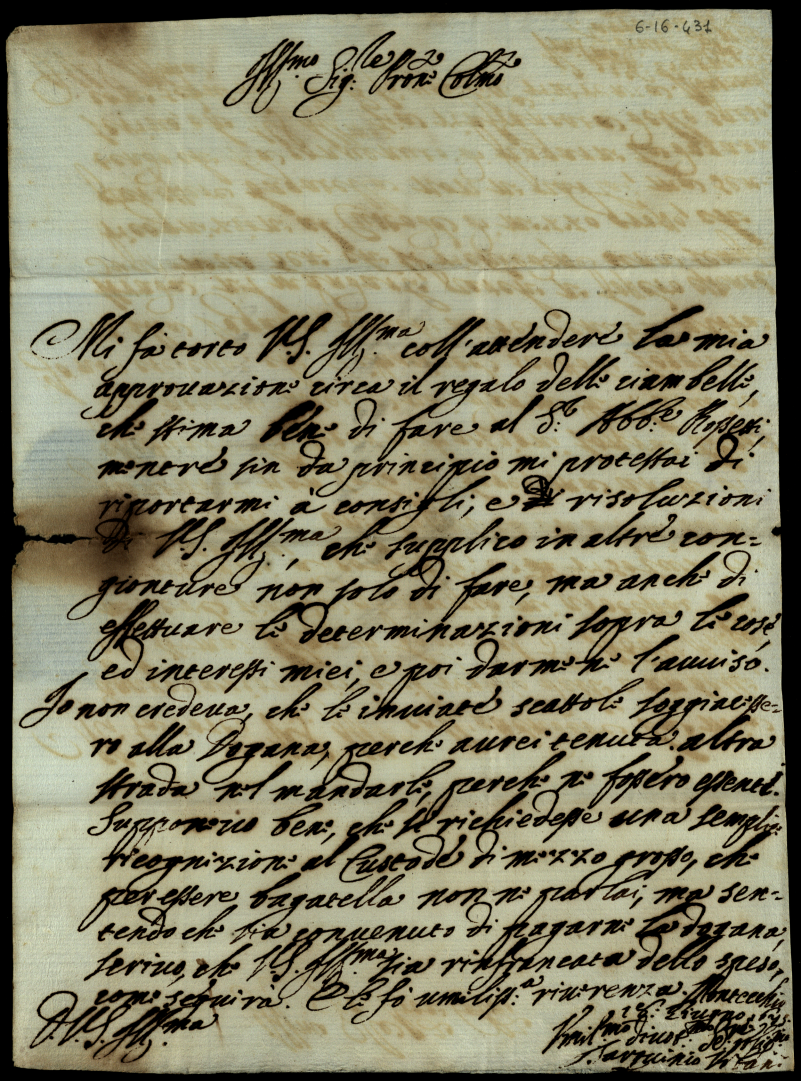 6-16-431
Ill.mo Sig.re Pron.e Colmo
Mi fà torto V.S. Ill.ma coll'attendere la mia
approuazione circa il regalo delle ciambelle,
che stima bene di fare al S.r Abb.e Rossetti,
mentre sin da principio mi protestai di
riportarmi à consigli, e risoluzioni
di V.S. Ill.ma, che supplico in altre con=
gionture non solo di fare, ma anche di
effettuare le determinazioni sopra le cose,
ed interessi miei, e poi darmene l'auuiso.
Io non credeua, che le inuiate scattole soggiacesse=
ro alla Dogana, perche aurei tenuta altra
strada nel mandarle, perche ne fossero essenti.
Supponeuo bene, che si richiedesse una semplice
ricognizione al Custode di mezzo grosso, che
per essere bagatella non ne parlai, ma sen=
tendo che sia conuenuto di pagarne la dogana,
scriuo, che V.S. Ill.ma sia rinfrancata dello speso,
come seguirà. E le fò umiliss.a riuerenza. Montecchio
Giugno
D. V.S. Ill.ma
Vmil.mo diuot.mo
Tarquinio